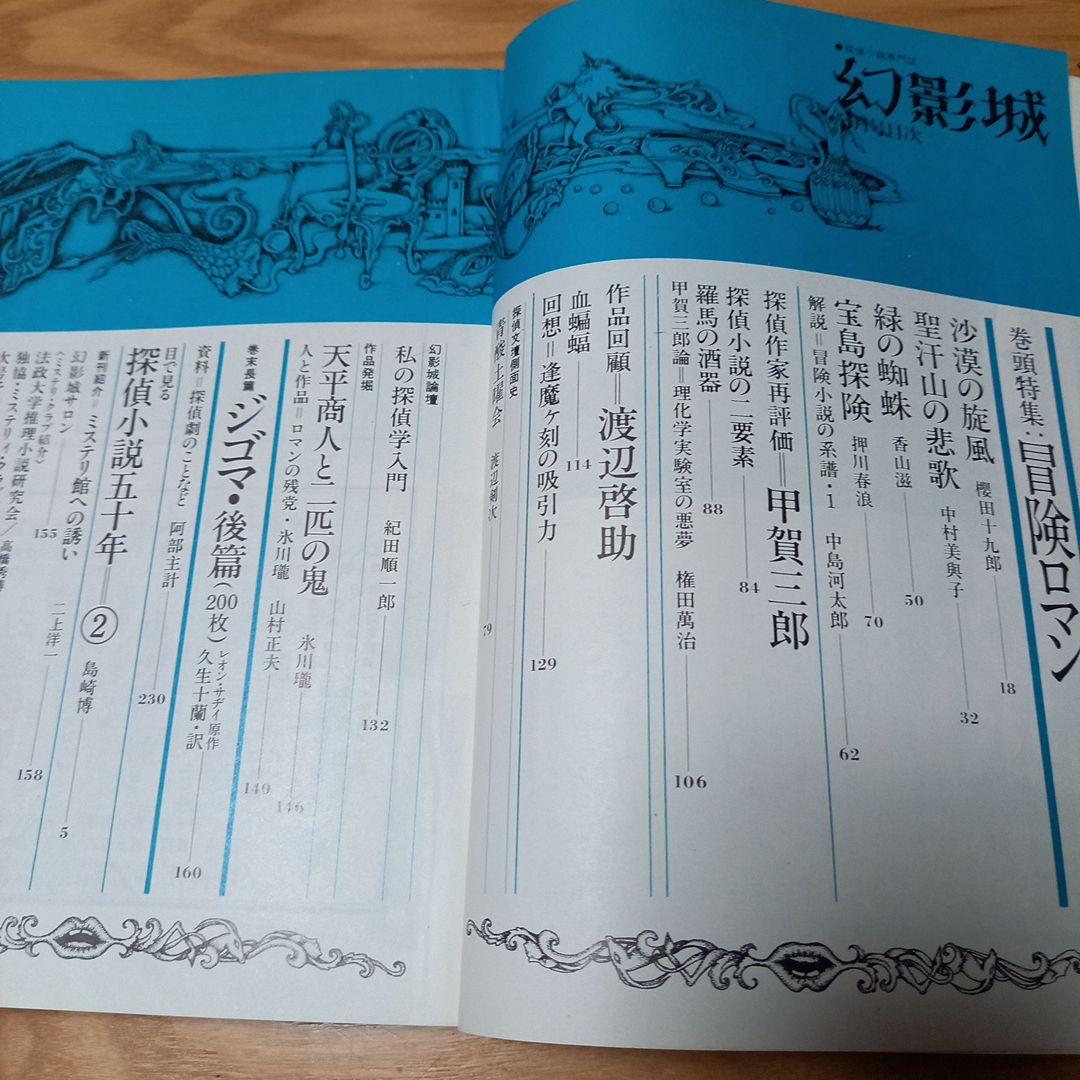 ●探偵小説専門誌
幻影城
目次
巻頭特集:冒険ロマン
沙漠の旋風 櫻田十九郎 18
聖汗山の悲歌 中村美與子 32
緑の蜘蛛 香山滋 50
宝島探険 押川春浪 70
解説=冒険小説の系譜・1 中島河太郎 62
探偵作家再評価=甲賀三郎
探偵小説の二要素 84
羅馬の酒器 88
甲賀三郎論=理化学実験室の悪夢 権田萬治 106
作品回顧=渡辺啓助
血蝙蝠 114
回想=逢魔ヶ刻の吸引力 129
探偵文壇側面史
土曜会 渡辺剣次 79
幻影城論壇
私の探偵学入門 紀田順一郎 132
作品発掘
天平商人と二匹の鬼 氷川瓏 146
人と作品=ロマンの残党・氷川瓏 山村正夫 140
巻末長篇
ジゴマ・後篇(200枚) レオン・サヂイ原作 久生十蘭・訳 160
資料=探偵劇のことなど 阿部主計 230
目で見る
探偵小説五十年=② 島崎博 5
新刊紹介=ミステリ館への誘い 二上洋一 158
幻影城サロン 155
〈ミステリ・クラブ紹介〉
法政大学推理小説研究会/高橋秀博
独協・ミステリィ・クラブ